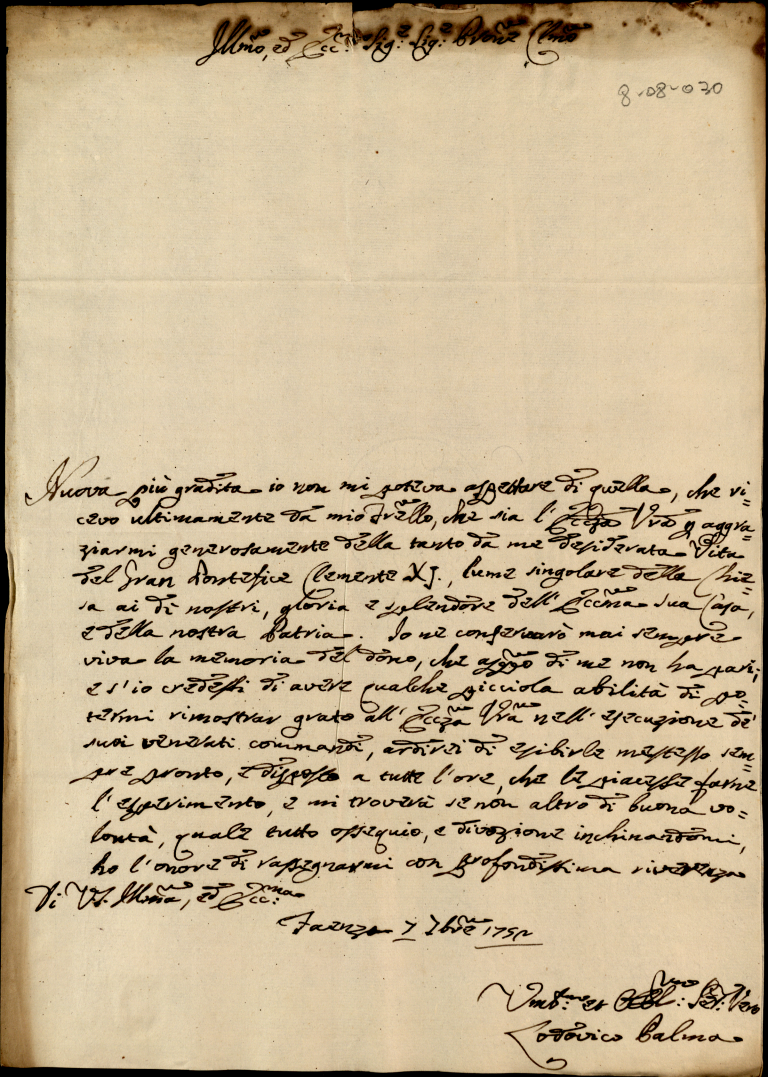 Illmo, ed Ecc.mo Sig.r Sig.r Prone Clmo
8-08-030
Nuova più gradita io non mi poteva aspettare di quella, che ri=
cevo ultimamente da mio Frello, che sia l'Eccza Vra p aggra=
ziarmi generosamente della tanto da me desiderata Vita
del Gran Pontefice Clemente XI., lume singolare della Chie=
sa ai dì nostri, gloria e splendore dell'Eccma sua Casa,
e della nostra Patria. Io ne conserverò mai sempre
viva la memoria del dono, che appo di me non ha pari;
e s'io credessi di avere qualche picciola abilità di po=
termi rimostrar grato all'Eccza Vra nell'esecuzione de'
suoi venerati commandi, ardirei di esibirle mestesso sem=
pre pronto, e disposto a tutte l'ore, che le piacesse farne
l'esperimento, e mi troverà se non altro di buona vo=
lontà, quale tutto ossequio, e divozione inchinandomi,
ho l'onore di rassegnarmi con profondissima riverenza
Di V.S. Illma, ed Ecc.ma
Faenza 7 7bre 1752
Umo et Obbl.mo Serv. Vero
Lodovico Balma